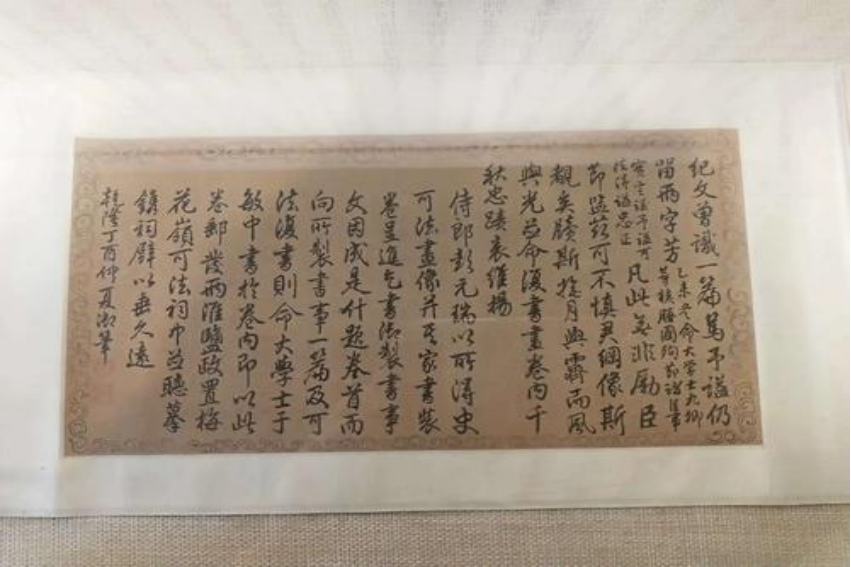 纪文曾識一篇篤予諡仍
留兩字芳乙未冬命大學士九卿
等核勝國殉節諸臣事
實定諡予諡可
法得諡忠正凡此無非勵臣
節監茲可不慎君綱像斯
覩矣牘斯撫月與霽而風
與光並命復書畫卷內千
秋忠蹟表維揚
侍郎彭元瑞以所得史
可法畫像并其家書裝
卷呈進乞書御製書事
文因成是什題卷首而
向所製書事一篇及可
法復書則命大學士于
敏中書於卷內即以此
卷郵發兩淮鹽政置梅
花嶺可法祠中並聽摹
鐫祠壁以垂久遠
乾隆丁酉仲夏御筆